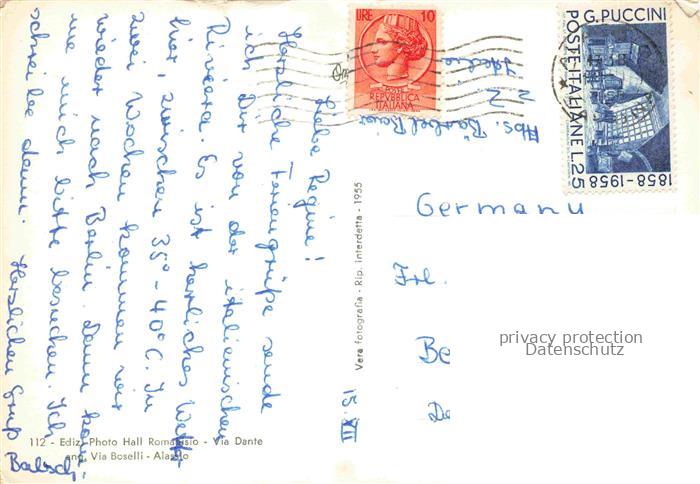 LIRE 10
POSTE REPVBBLICA ITALIANA
G. PUCCINI
POSTE ITALIANE L. 25
1858-1958
Abs. Bärbel
z. Z. Italien
Liebe Regine!
Herzliche Feriengrüße sende
ich Dir von der italienischen
Riviera. Es ist herrliches Wetter
hier, zwischen 35° - 40° C. In
zwei Wochen kommen wir
wieder nach Berlin. Dann kom
me mich bitte besuchen. Ich
schreibe dann.
Herzlichen Gruß
Vera fotografia - Rip. interdetta - 1955
Germany
Frl.
Be
15. XII
privacy protection
Datenschutz
112 - Ediz. Photo Hall Romarisio - Via Dante
ang. Via Boselli - Alassio